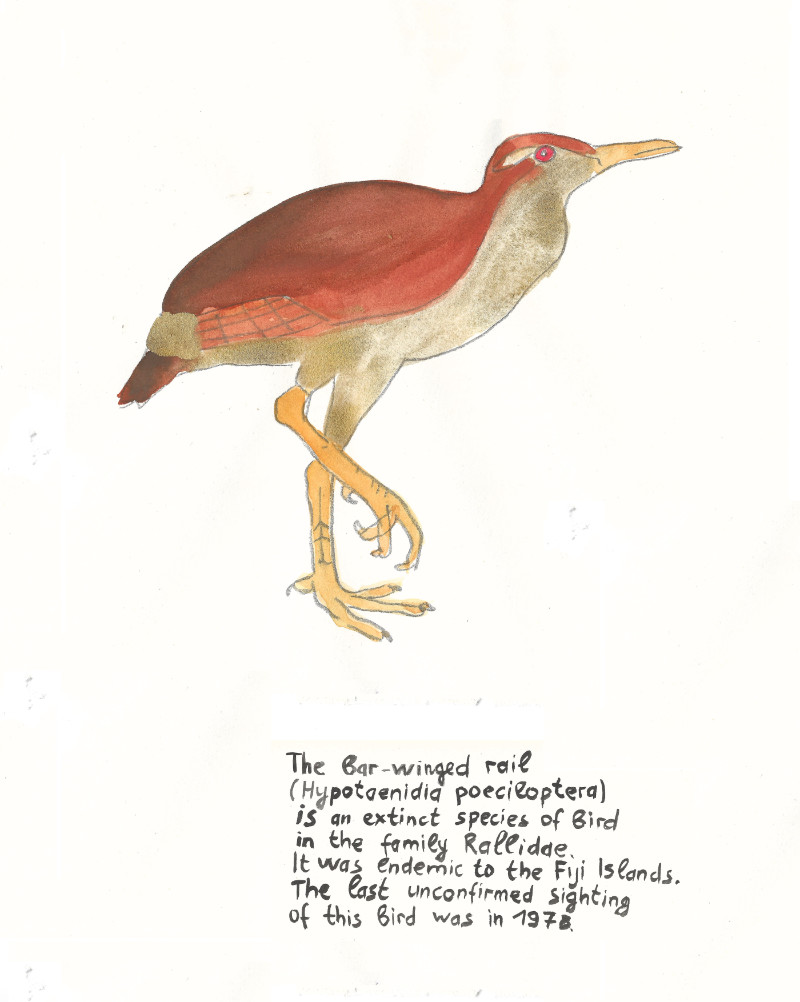 The Bar-winged rail
(Hypotaenidia poeciloptera)
is an extinct species of Bird
in the family Rallidae.
It was endemic to the Fiji Islands.
The last unconfirmed sighting
of this Bird was in 1978.